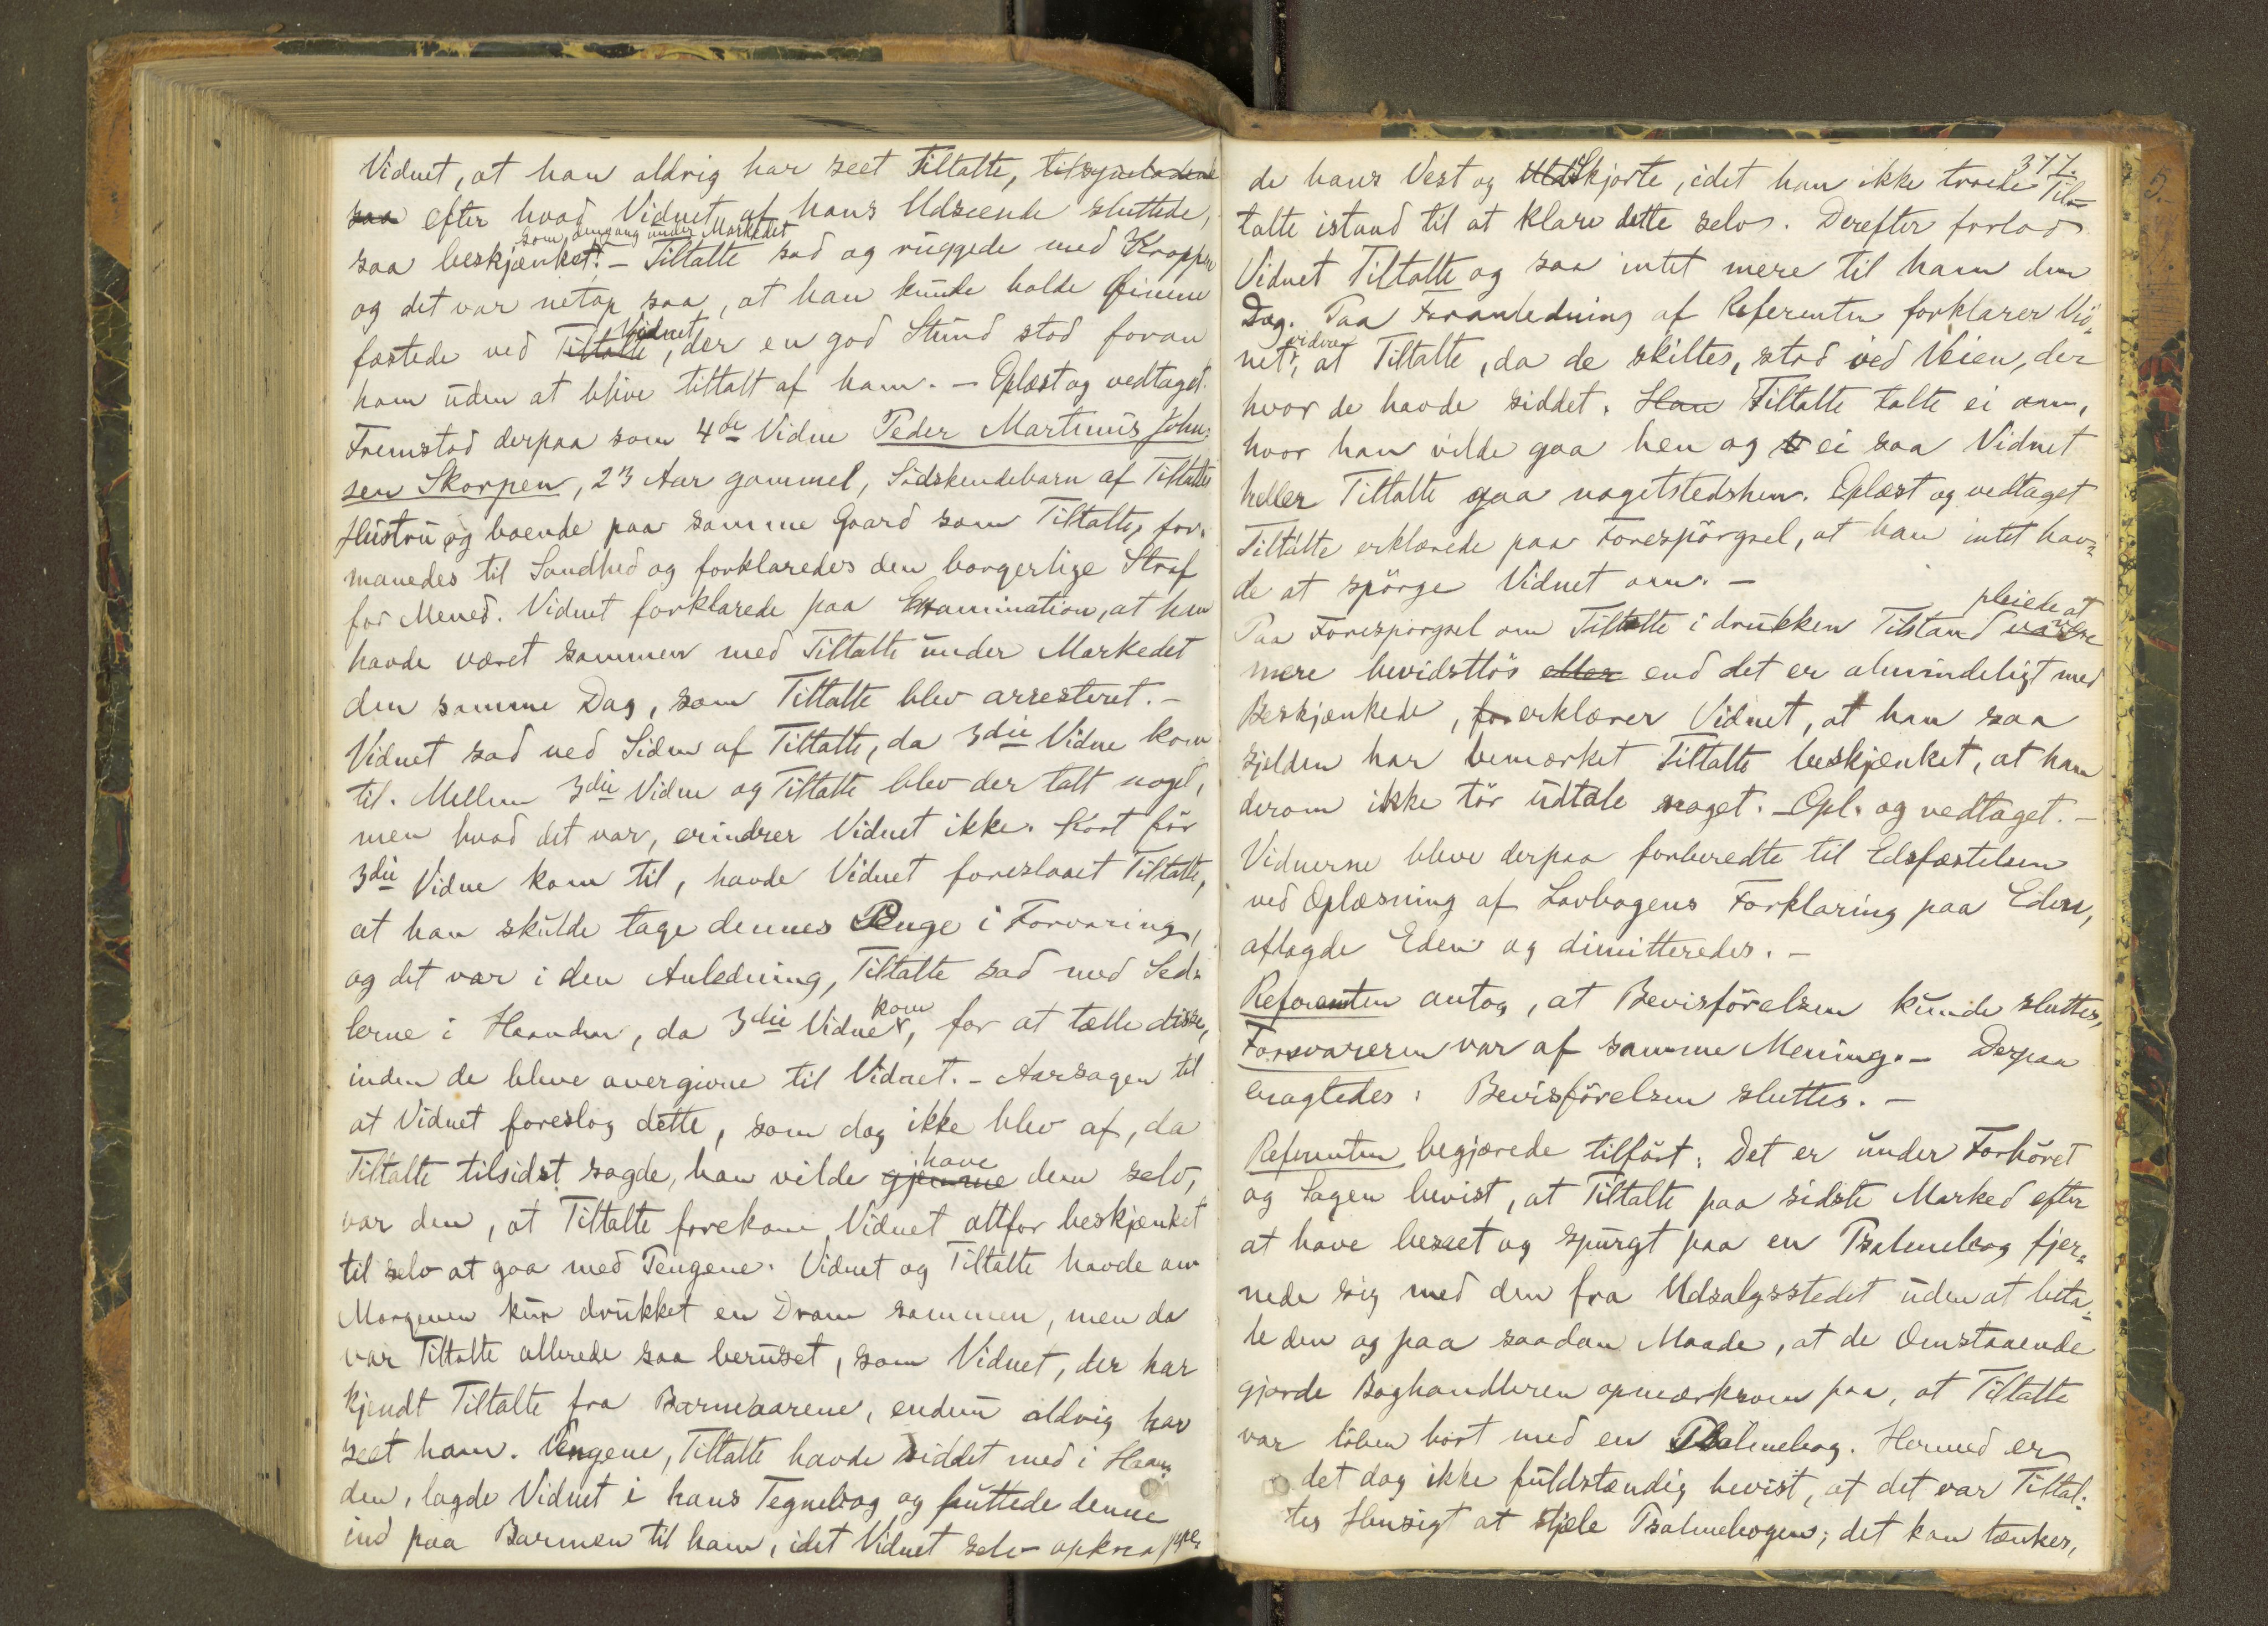 Vidnet, at han aldrig har seet Tiltalte, tilsyneladende
saa efter hvad Vidnet af hans Udseende sluttede,
som omgang under Markedet
saa beskjænket. – Tiltalte sad og ruggede med Kroppen
og det var netop saa, at han kunde holde Öinene
Vidnet
fæstede ved Tiltalte, der en god Stund stod foran
ham uden at blive tiltalt af ham. – Oplæst og vedtaget.
Fremstod derpaa som 4de Vidne Peder Martinus John-
sen Skorpen, 23 Aar gammel, Södskendebarn af Tiltaltes
Hustru og boende paa samme Gaard som Tiltalte, for-
manedes til Sandhed og forklaredes den borgerlige Straf
for Mened. Vidnet forklarede paa Examination, at han
havde været sammen med Tiltalte under Markedet
den samme Dag, som Tiltalte blev arresteret. –
Vidnet sad ved Siden af Tiltalte, da 3die Vidne kom
til. Mellem 3die Vidne og Tiltalte blev der talt noget,
men hvad det var, erindrer Vidnet ikke. Kort för
3die Vidne kom til, havde Vidnet foreslaaet Tiltalte,
at han skulde tage dennes Penge i Forvaring,
og det var i den Anledning, Tiltalte sad med Sed-
kom
lerne i Haanden, da 3die Vidne, for at tælle disse,
inden de bleve overgivne til Vidnet. – Aarsagen til
at Vidnet foreslog dette, som dog ikke blev af, da
have
Tiltalte tilsidst sagde, han vilde gjemme dem selv,
var den, at Tiltalte forekom Vidnet altfor beskjænket
til selv at gaa med Pengene. Vidnet og Tiltalte havde om
Morgenen kun drukket en Dram sammen, men da
var Tiltalte allerede saa beruset, som Vidnet, der har
kjendt Tiltalte fra Barneaarene, endnu aldrig har
seet ham. Pengene, Tiltalte havde siddet med i Haan-
den, lagde Vidnet i hans Tegnebog og puttede denne
ind paa Barmen til ham, idet Vidnet selv opknappe-
377.
de hans Vest og Skjorte, idet han ikke troede Til-
talte istand til at klare dette selv. Derefter forlod
Vidnet Tiltalte og saa intet mere til ham den
Dag. Paa Foranledning af Referenten forklarer Vid-
videre
net, at Tiltalte, da de skiltes, stod ved Veien, der
hvor de havde siddet. Han Tiltalte talte ei om,
hvor han vilde gaa hen og ei saa Vidnet
heller Tiltalte gaa nogetstedshen. Oplæst og vedtaget
Tiltalte erklærede paa Forespörgsel, at han intet hav-
de at spörge Vidnet om. –
pleiede at
Paa Forespörgsel om Tiltalte i drukken Tilstand være
mere bevidstlös eller end det er almindeligt med
Beskjænkede, for erklærer Vidnet, at han saa
sjelden har bemærket Tiltalte beskjænket, at han
derom ikke tör udtale noget. – Opl. og vedtaget. –
Vidnerne bleve derpaa forberedte til Edsfæstelsen
ved Oplæsning af Lovbogens Forklaring paa Eden,
aflagde Eden og dimitteredes. –
Referenten antog, at Bevisförelsen kunde sluttes,
Forsvareren var af samme Mening. – Derpaa
eragtedes: Bevisförelsen sluttes. –
Referenten begjærede tilfört: Det er under Forhöret
og Sagen bevist, at Tiltalte paa sidste Marked efter
at have beseet og spurgt paa en Psalmebog fjer-
nede sig med den fra Udsalgsstedet uden at beta-
le den og paa saadan Maade, at de Omstaaende
gjorde Boghandleren opmærksom paa, at Tiltalte
var löben bort med en Psalmebog. Hermed er
det dog ikke fuldstændig bevist, at det var Tiltal-
tes Hensigt at stjæle Psalmebogen; det kan tænkes,
5.